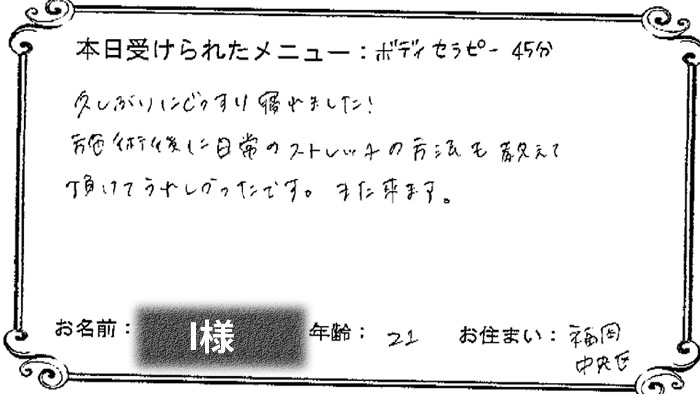 本日受けられたメニュー：ボディセラピー 45分
久しぶりにぐっすり寝れました!
施術後に日常のストレッチの方法も教えて
頂けてうれしかったです。また来ます。
お名前： I様 年齢： 21 お住まい： 福岡
中央区